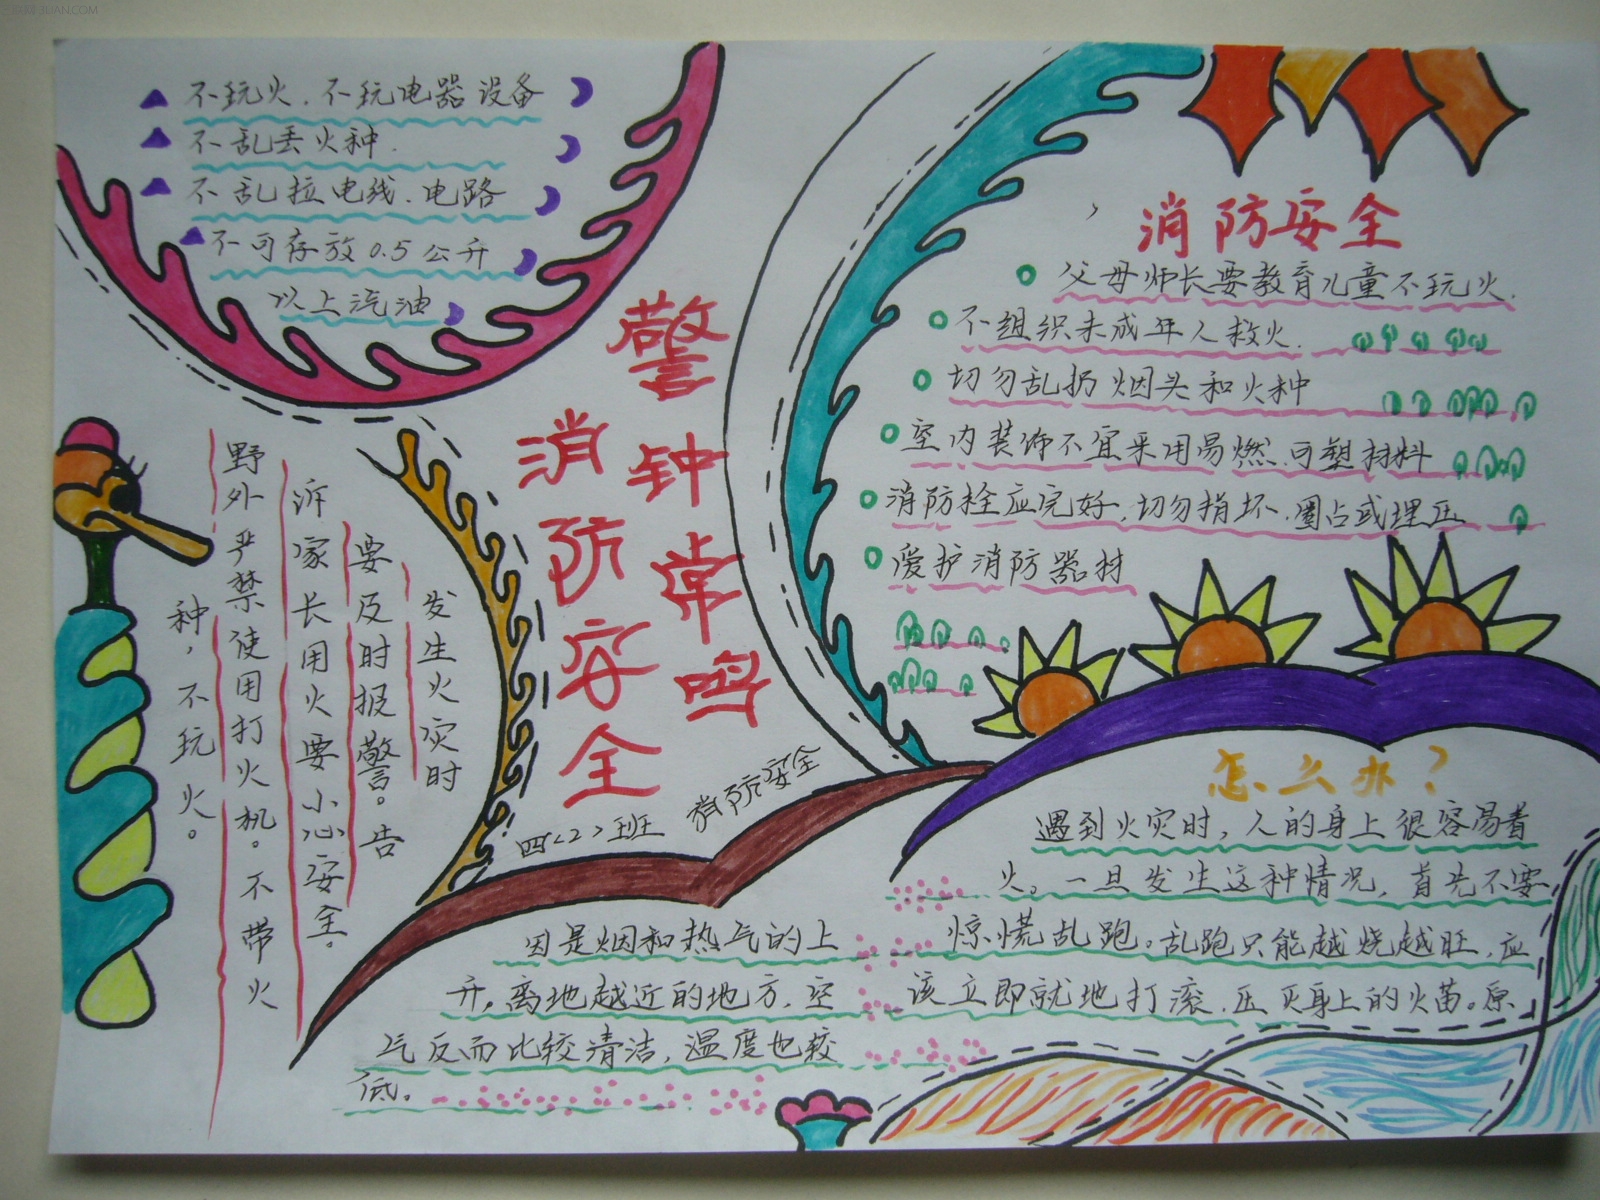 不玩火、不玩电器设备
不乱丢火种.
不乱拉电线、电路
不可存放0.5公升
以上汽油
警钟常鸣
消防安全
四<2>班
消防安全
消防安全
父母师长要教育儿童不玩火.
不组织未成年人救火.
切勿乱扔烟头和火种
室内装饰不宜采用易燃、可塑材料
消防栓应完好,切勿捎坏、圈占或埋压
爱护消防器材
发生火灾时
要及时报警。告
诉家长用火要小心安全。
野外严禁使用打火机。不带火
种,不玩火。
怎么办?
遇到火灾时,人的身上很容易着
火。一旦发生这种情况,首先不要
惊慌乱跑。乱跑只能越烧越旺,应
该立即就地打滚、压灭身上的火苗。原
因是烟和热气的上
升。离地越近的地方、空
气反而比较清洁,温度也较
低。